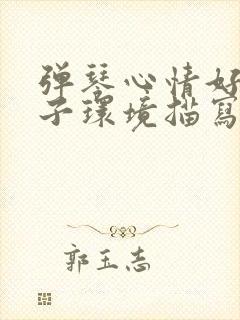 弹琴心情好
子環境描寫
郭玉志